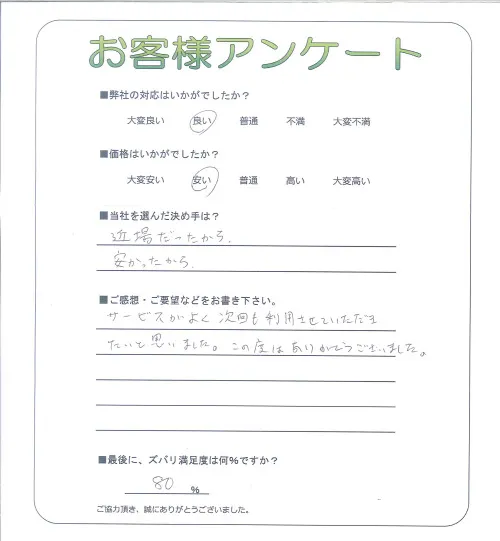 お客様アンケート
■弊社の対応はいかがでしたか？
大変良い 良い 普通 不満 大変不満
■価格はいかがでしたか？
大変安い 安い 普通 高い 大変高い
■当社を選んだ決め手は？
近場だったから.
安かったから.
■ご感想・ご要望などをお書き下さい。
サービスがよく次回も利用させていただき
たいと思いました。この度はありがとうございました。
■最後に、ズバリ満足度は何%ですか？
80 %
ご協力頂き、誠にありがとうございました。